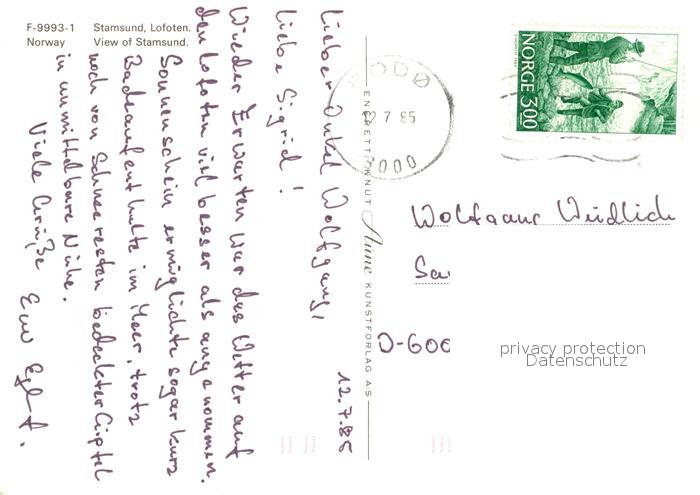 F-9993-1 Stamsund, Lofoten.
Norway View of Stamsund.
12.7.85
Lieber Onkel Wolfgang,
liebe Sigrid!
Wieder Erwarten war das Wetter auf
den Lofoten viel besser als angenommen.
Sonnenschein ermöglichte sogar kurz
Badeaufenthalte im Meer, trotz
noch von Schneeresten bedeckter Gipfel
in unmittelbare Nähe.
Viele Grüße
Euer
ENERETT: KNUT Aune KUNSTFORLAG AS
BODØ
12 7 85
8000
NORGE 300
Wolfgang Weidlich
D-600
privacy protection
Datenschutz